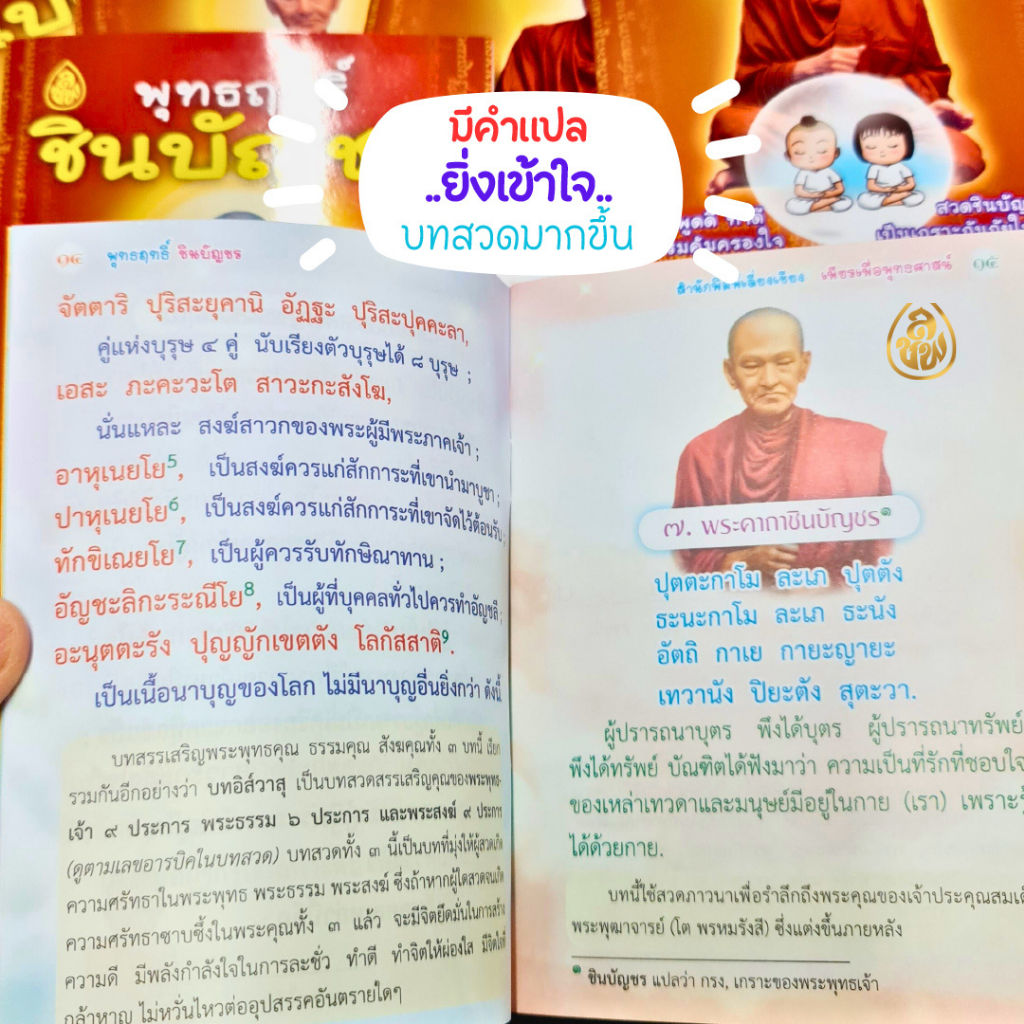 พุทธฤทธิ์
มีคำแปล
..ยิ่งเข้าใจ..
บทสวดมากขึ้น
๑๔ พุทธฤทธิ์ ชินบัญชร
จัตตาริ ปุริสะยุคานิ อัฏฐะ ปุริสะปุคคะลา,
คู่แห่งบุรุษ ๔ คู่ นับเรียงตัวบุรุษได้ ๘ บุรุษ ;
เอสะ ภะคะวะโต สาวะกะสังโฆ,
นั่นแหละ สงฆ์สาวกของพระผู้มีพระภาคเจ้า ;
อาหุเนยโย5, เป็นสงฆ์ควรแก่สักการะที่เขานำมาบูชา ;
ปาหุเนยโย6, เป็นสงฆ์ควรแก่สักการะที่เขาจัดไว้ต้อนรับ ;
ทักขิเณยโย7, เป็นผู้ควรรับทักษิณาทาน ;
อัญชะลิกะระณีโย8, เป็นผู้ที่บุคคลทั่วไปควรทำอัญชลี ;
อะนุตตะรัง ปุญญักเขตตัง โลกัสสาติ9.
เป็นเนื้อนาบุญของโลก ไม่มีนาบุญอื่นยิ่งกว่า ดังนี้
บทสรรเสริญพระพุทธคุณ ธรรมคุณ สังฆคุณทั้ง ๓ บทนี้ เรียก
รวมกันอีกอย่างว่า บทอิสวาสุ เป็นบทสวดสรรเสริญคุณของพระพุทธ-
เจ้า ๙ ประการ พระธรรม ๖ ประการ และพระสงฆ์ ๙ ประการ
(ดูตามเลขอารบิคในบทสวด) บทสวดทั้ง ๓ นี้เป็นบทที่มุ่งให้ผู้สวดเกิด
ความศรัทธาในพระพุทธ พระธรรม พระสงฆ์ ซึ่งถ้าหากผู้ใดสวดจนเกิด
ความศรัทธาซาบซึ้งในพระคุณทั้ง ๓ แล้ว จะมีจิตยึดมั่นในการสร้าง
ความดี มีพลังกำลังใจในการละชั่ว ทำดี ทำจิตให้ผ่องใส มีจิตใจที่
กล้าหาญ ไม่หวั่นไหวต่ออุปสรรคอันตรายใดๆ
สวดชินบัญ
สำนักพิมพ์เลี่ยงเชียง เพียรเพื่อพุทธศาสน์ ๑๕
๗. พระคาถาชินบัญชร๑
ปุตตะกาโม ละเภ ปุตตัง
ธะนะกาโม ละเภ ธะนัง
อัตถิ กาเย กายะญายะ
เทวานัง ปิยะตัง สุตะวา.
ผู้ปรารถนาบุตร พึงได้บุตร ผู้ปรารถนาทรัพย์
พึงได้ทรัพย์ บัณฑิตได้ฟังมาว่า ความเป็นที่รักที่ชอบใจ
ของเหล่าเทวดาและมนุษย์มีอยู่ในกาย (เรา) เพราะรู้
ได้ด้วยกาย.
บทนี้ใช้สวดภาวนาเพื่อรำลึกถึงพระคุณของเจ้าประคุณสมเด็
พระพุฒาจารย์ (โต พรหมรังสี) ซึ่งแต่งขึ้นภายหลัง
๑ ชินบัญชร แปลว่า กรง, เกราะของพระพุทธเจ้า